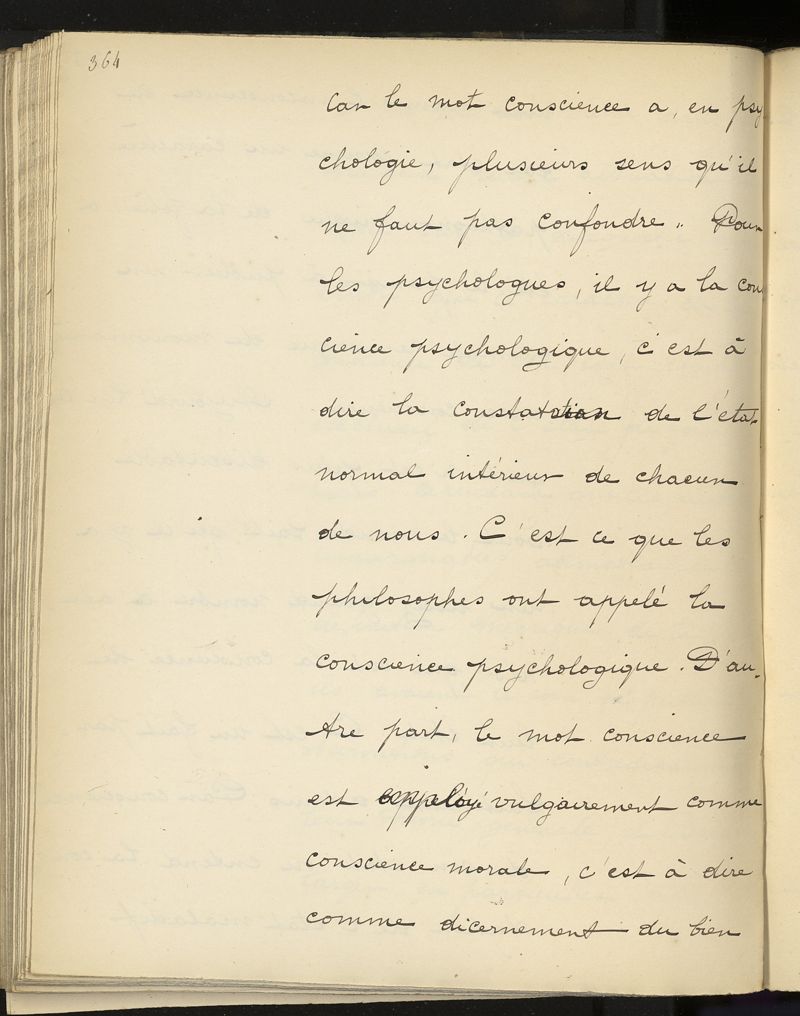 364
Car le mot conscience a, en psy
chologie, plusieurs sens qu'il
ne faut pas confondre. Pour
les psychologues, il y a la cons
cience psychologique, c'est à
dire la constatation de l'état
normal intérieur de chacun
de nous. C'est ce que les
philosophes ont appelé la
conscience psychologique. D'au-
tre part, le mot conscience
est employé vulgairement comme
conscience morale, c'est à dire
comme dicernement du bien